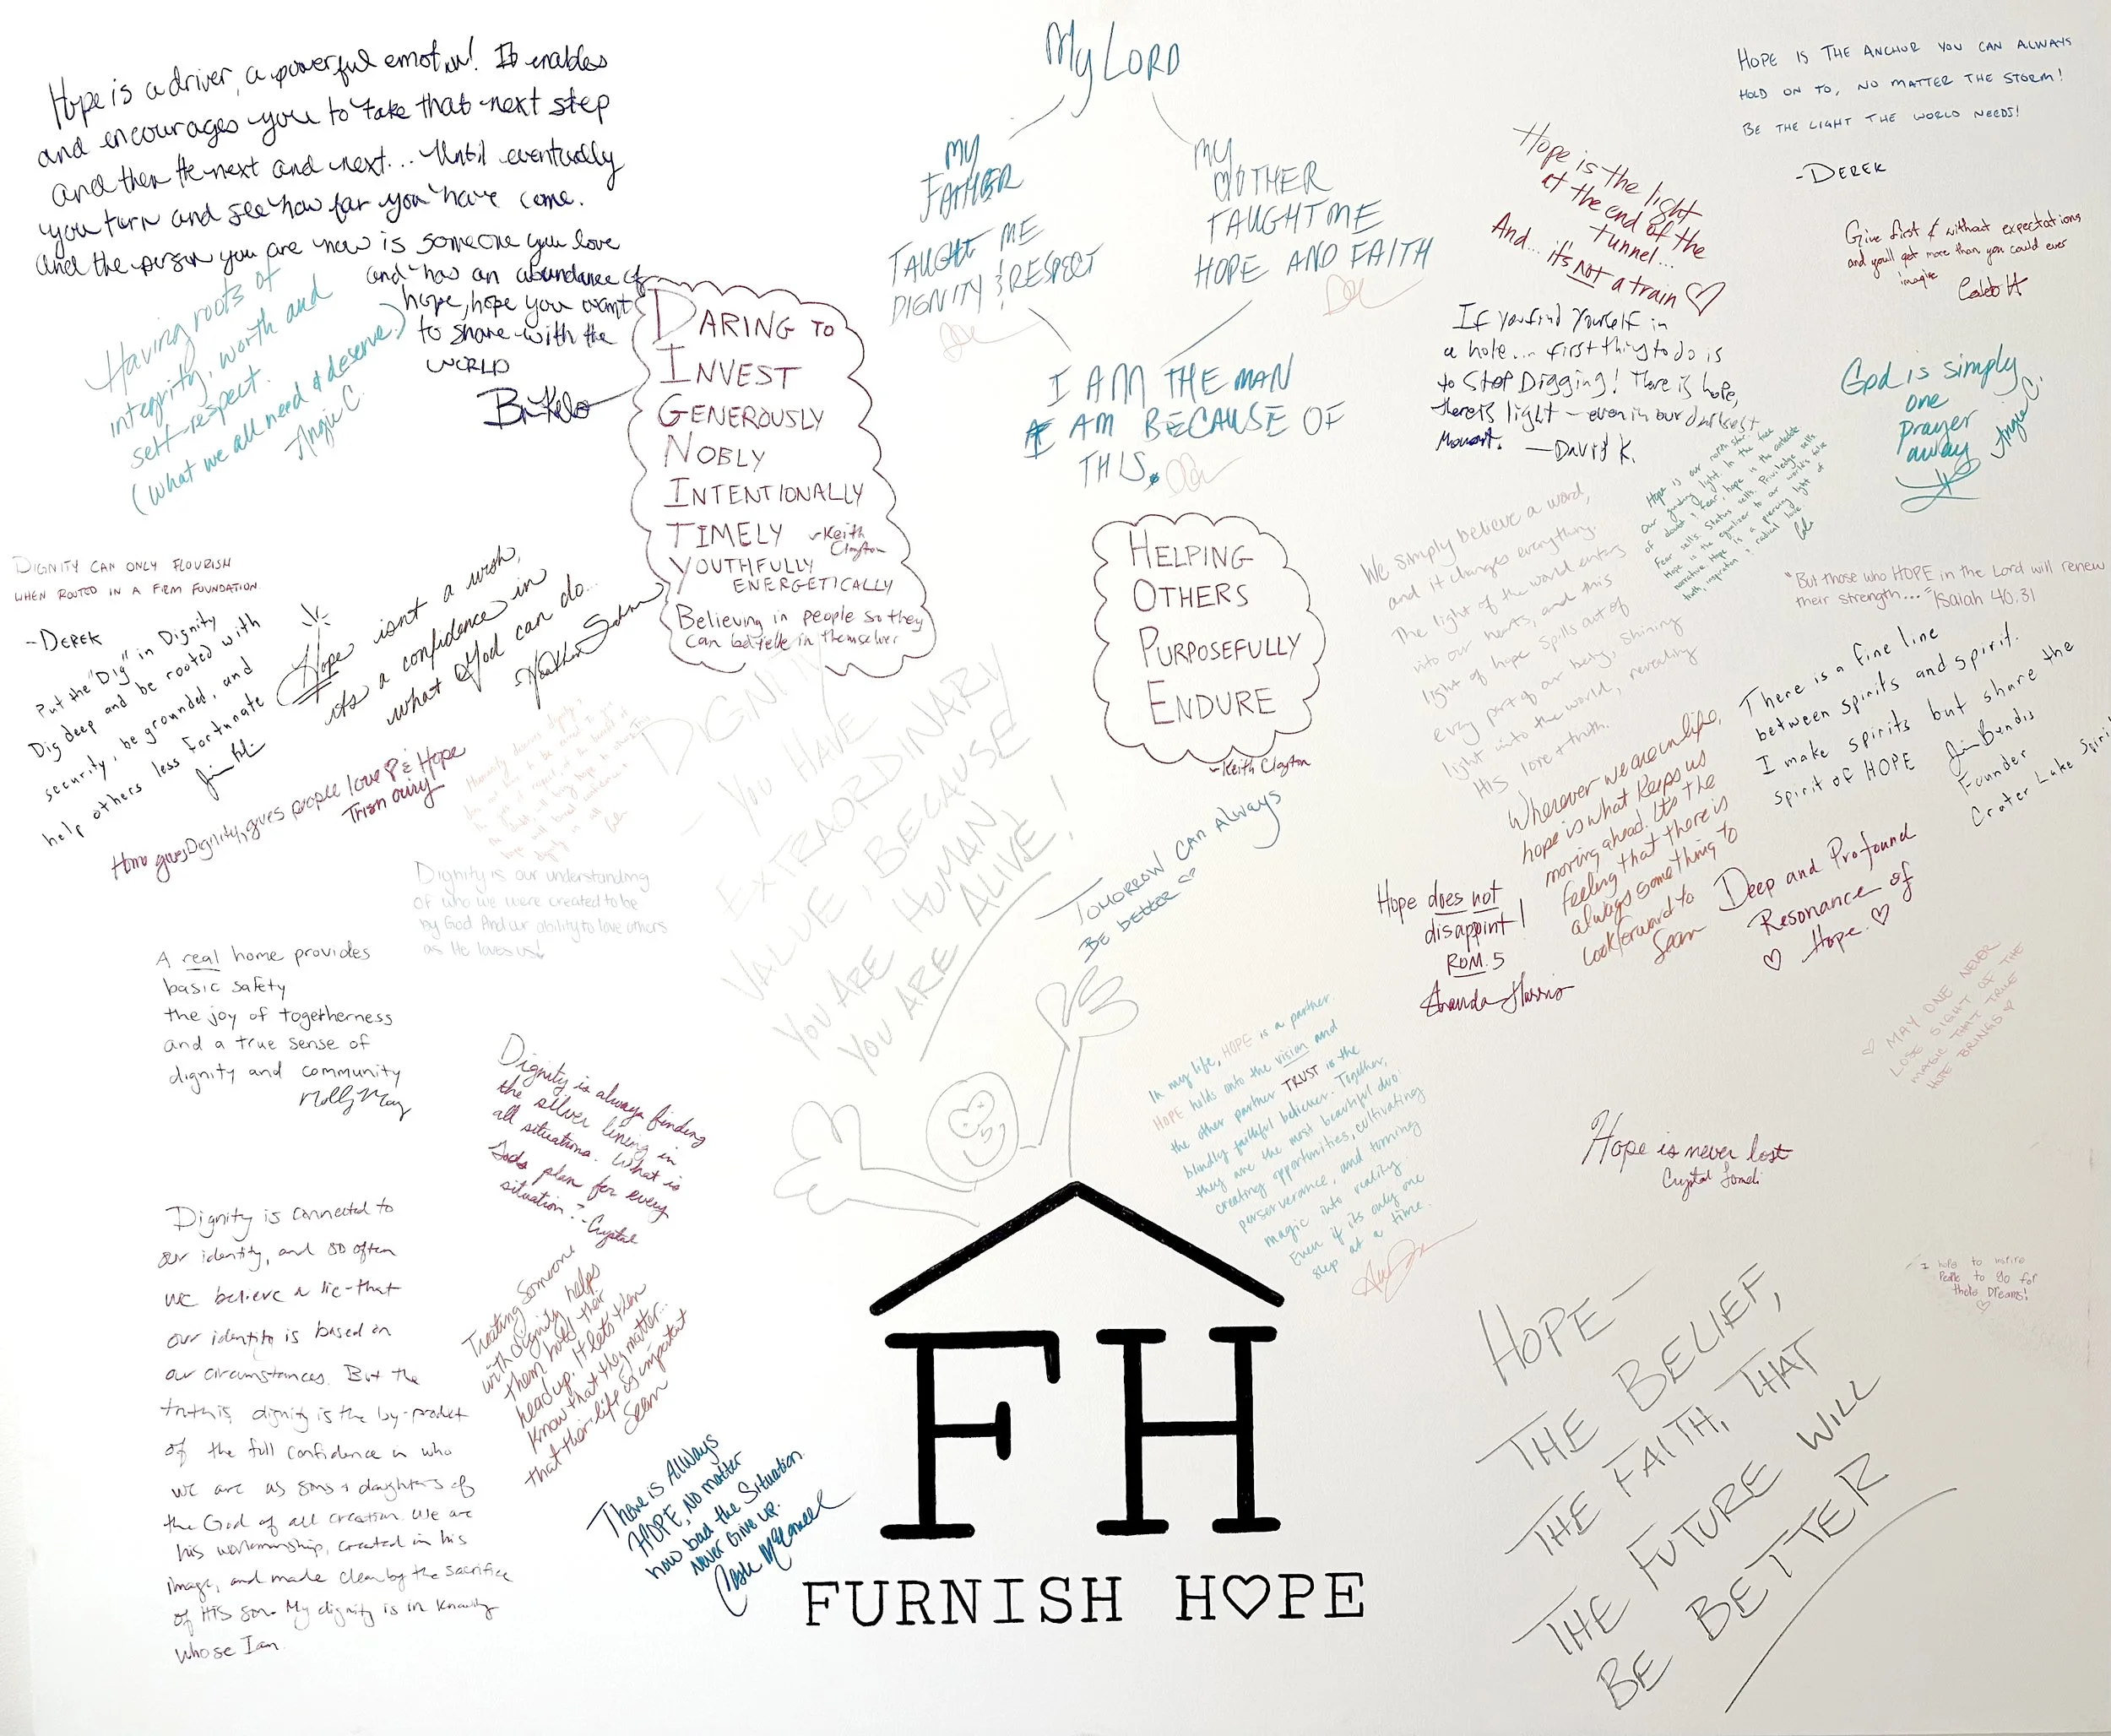 Hope is a driver, a powerful emotion! It enables
and encourages you to take that next step
and then the next and next... Until eventually
you turn and see how far you have come.
and the person you are now is someone you love
and has an abundance of
hope, hope you want
to share with the
WORLD
Having roots of
integrity, worth and
self-respect.
(what we all need & deserve.)
Angie C.
DARING TO
INVEST
GENEROUSLY
NOBLY
INTENTIONALLY
TIMELY
-Keith
Clayton
YOUTHFULLY
ENERGETICALLY
Believing in people so they
can believe in themselves
My LORD
MY
FATHER
TAUGHT ME
DIGNITY & RESPECT
MY
MOTHER
TAUGHT ME
HOPE AND FAITH
I AM THE MAN
I AM BECAUSE OF
THIS.
HOPE IS THE ANCHOR YOU CAN ALWAYS
HOLD ON TO, NO MATTER THE STORM!
BE THE LIGHT THE WORLD NEEDS!
-DEREK
Hope is the light
at the end of the
tunnel...
And... it's not a train ♡
Give first & without expectations
and you'll get more than you could ever
imagine
Caleb H
If you find yourself in
a hole... first thing to do is
to Stop Digging! There is hope,
there is light - even in our darkest
Moment. -David K.
God is simply
one
prayer
away
Angie C.
Hope is our north star
our guiding light. In the face
of doubt & fear, hope is the antidote
Fear sells. Status sells. Privilege sells
Hope is the equalizer to our world's false
narrative. Hope is a piercing light of
truth, inspiration & radical love.
DIGNITY CAN ONLY FLOURISH
WHEN ROOTED IN A FIRM FOUNDATION.
-DEREK
Put the "Dig" in Dignity
Dig deep and be rooted with
security, be grounded, and
help others less fortunate
Hope isn't a wish,
its a confidence in
what God can do...
Home gives Dignity, gives people love & Hope
HELPING
OTHERS
PURPOSEFULLY
ENDURE
-Keith Clayton
We simply believe a word,
and it changes everything.
The light of the world enters
into our hearts, and this
light of hope spills out of
every part of our body, shining
light into the world, revealing
HIS love + truth.
"But those who HOPE in the Lord will renew
their strength..." Isaiah 40.31
There is a fine line
between spirits and spirit.
I make spirits but share the
spirit of HOPE
Jim Bendis
Founder
Crater Lake Spiri
Wherever we are in life,
hope is what keeps us
moving ahead. It's the
feeling that there is
always something to
look forward to
Sean
Hope does not
disappoint!
ROM. 5
Deep and Profound
Resonance of
♡ Hope. ♡
DIGNITY
- YOU HAVE
EXTRAORDINARY
VALUE, BECAUSE
YOU ARE HUMAN,
YOU ARE ALIVE!
Dignity is our understanding
of who we were created to be
by God And our ability to love others
as He loves us!
TOMORROW CAN ALWAYS
BE BETTER ♡
A real home provides
basic safety
the joy of togetherness
and a true sense of
dignity and community
Molly May
Dignity is always finding
the silver lining in
all situations. What is
Gods plan for every
situation? -Crystal
In my life, HOPE is a partner.
HOPE holds onto the vision and
the other partner TRUST is the
blindly faithful believer. Together,
they are the most beautiful duo:
creating opportunities, cultivating
perserverance, and turning
magic into reality.
Even if its only one
step at a time.
♡ MAY ONE NEVER
LOSE SIGHT OF THE
MAGIC THAT TRUE
HOPE BRINGS ♡
Hope is never lost
Crystal
I hope to inspire
People to go for
their Dreams!
♡
Dignity is connected to
our identity, and so often
we believe a lie - that
our identity is based on
our circumstances. But the
truth is, dignity is the by-product
of the full confidence in who
we are as sons + daughters of
the God of all creation. We are
his workmanship, created in his
image, and made clean by the sacrifice
of HIS son. My dignity is in knowing
whose I am.
Treating Someone
with dignity helps
them hold their
head up. It lets them
know that they matter...
that their life is important
Sean
There is AlWays
HOPE, No matter
how bad the Situation.
Never Give up.
HOPE -
THE BELIEF,
THE FAITH, THAT
THE FUTURE WILL
BE BETTER
FH
FURNISH H♡PE